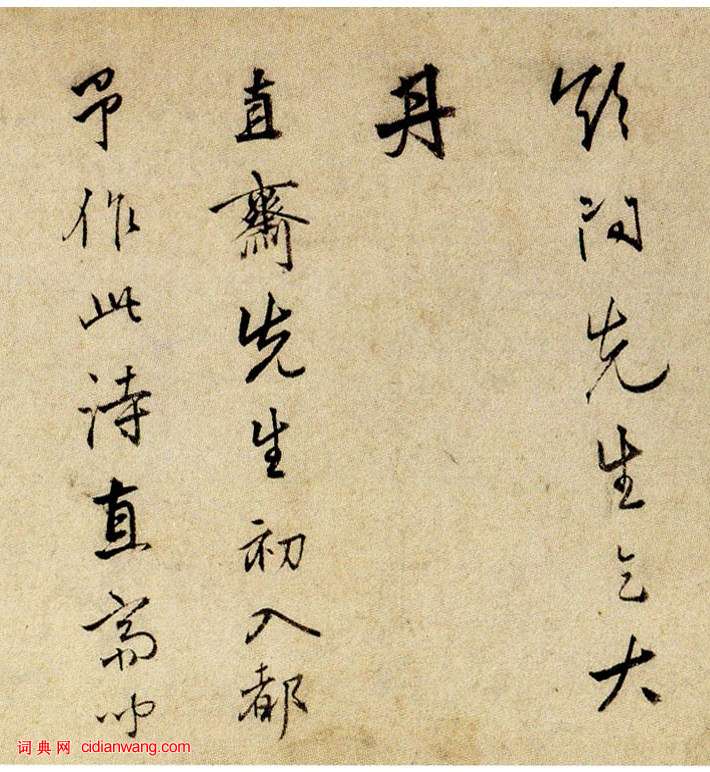 问先生乞大
丹
直齋先生初入都
予作此诗直斋
词典网 cidianwang.com